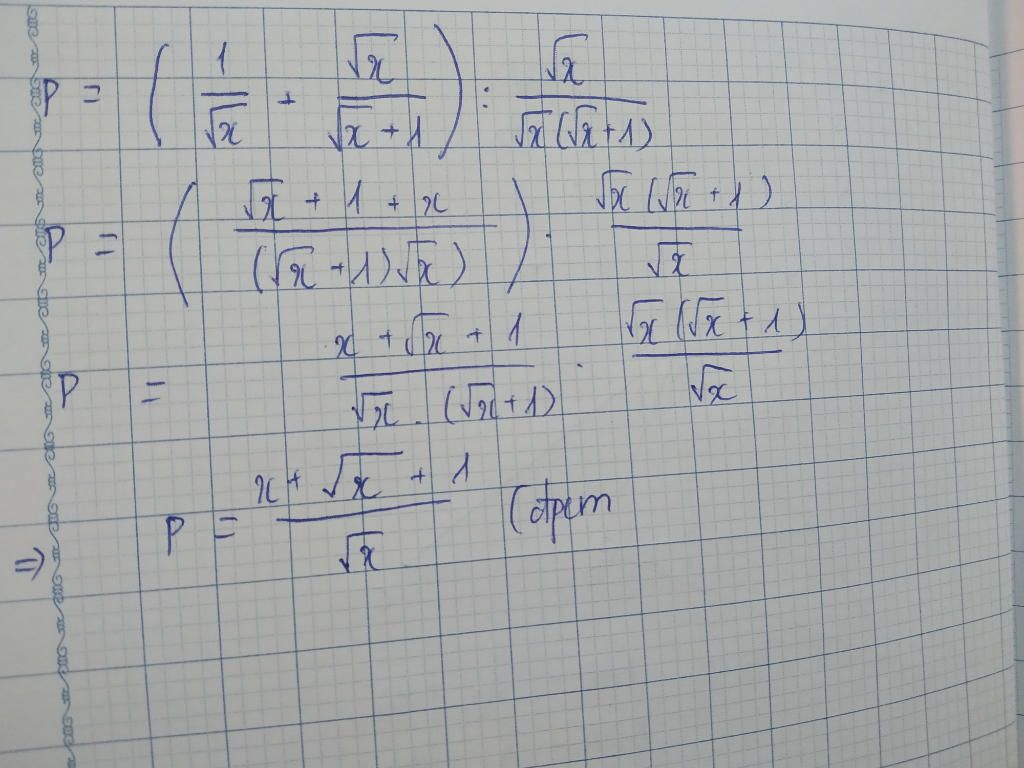 P = ( 1/√x + √x/(√x + 1) ) : √x/(√x (√x + 1))
P = ( (√x + 1 + x)/((√x + 1)√x) ) . √x (√x + 1)/√x
P = (x + √x + 1)/(√x . (√x + 1)) . √x (√x + 1)/√x
⇒ P = (x + √x + 1)/√x (đpcm